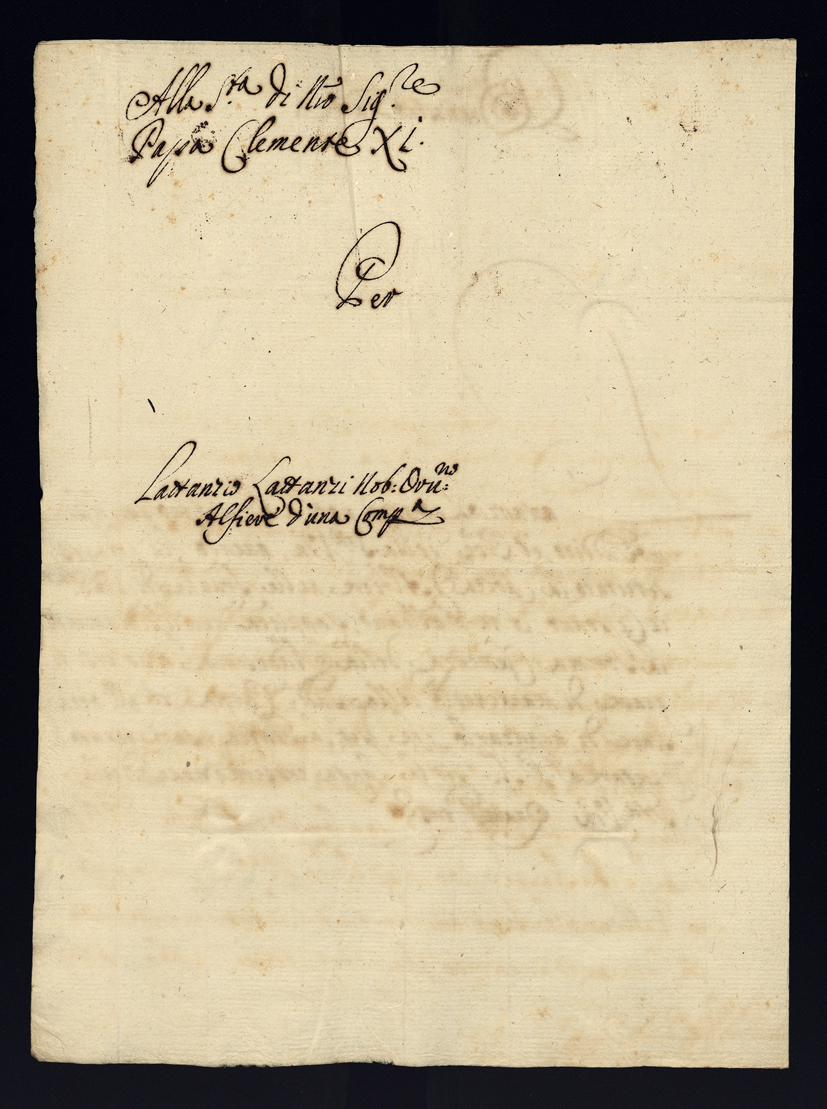 Alla S.ta di Nro Sig.re
Papa Clemente XI.
Per
Lattanzio Lattanzi Nob: Orvi:no
Alfiere d'una Comp.a